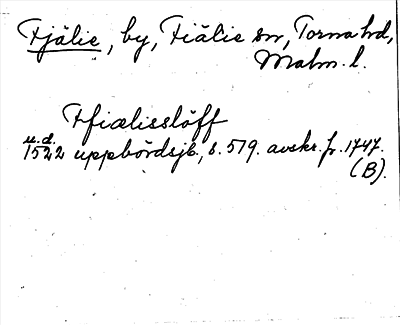 Fjälie, by, Fiälie sn, Torna hd,
Malm. l.
Ffiælisslöff
u.d.
1522 uppbördsjb., s. 579. avskr. fr. 1747.
(B).